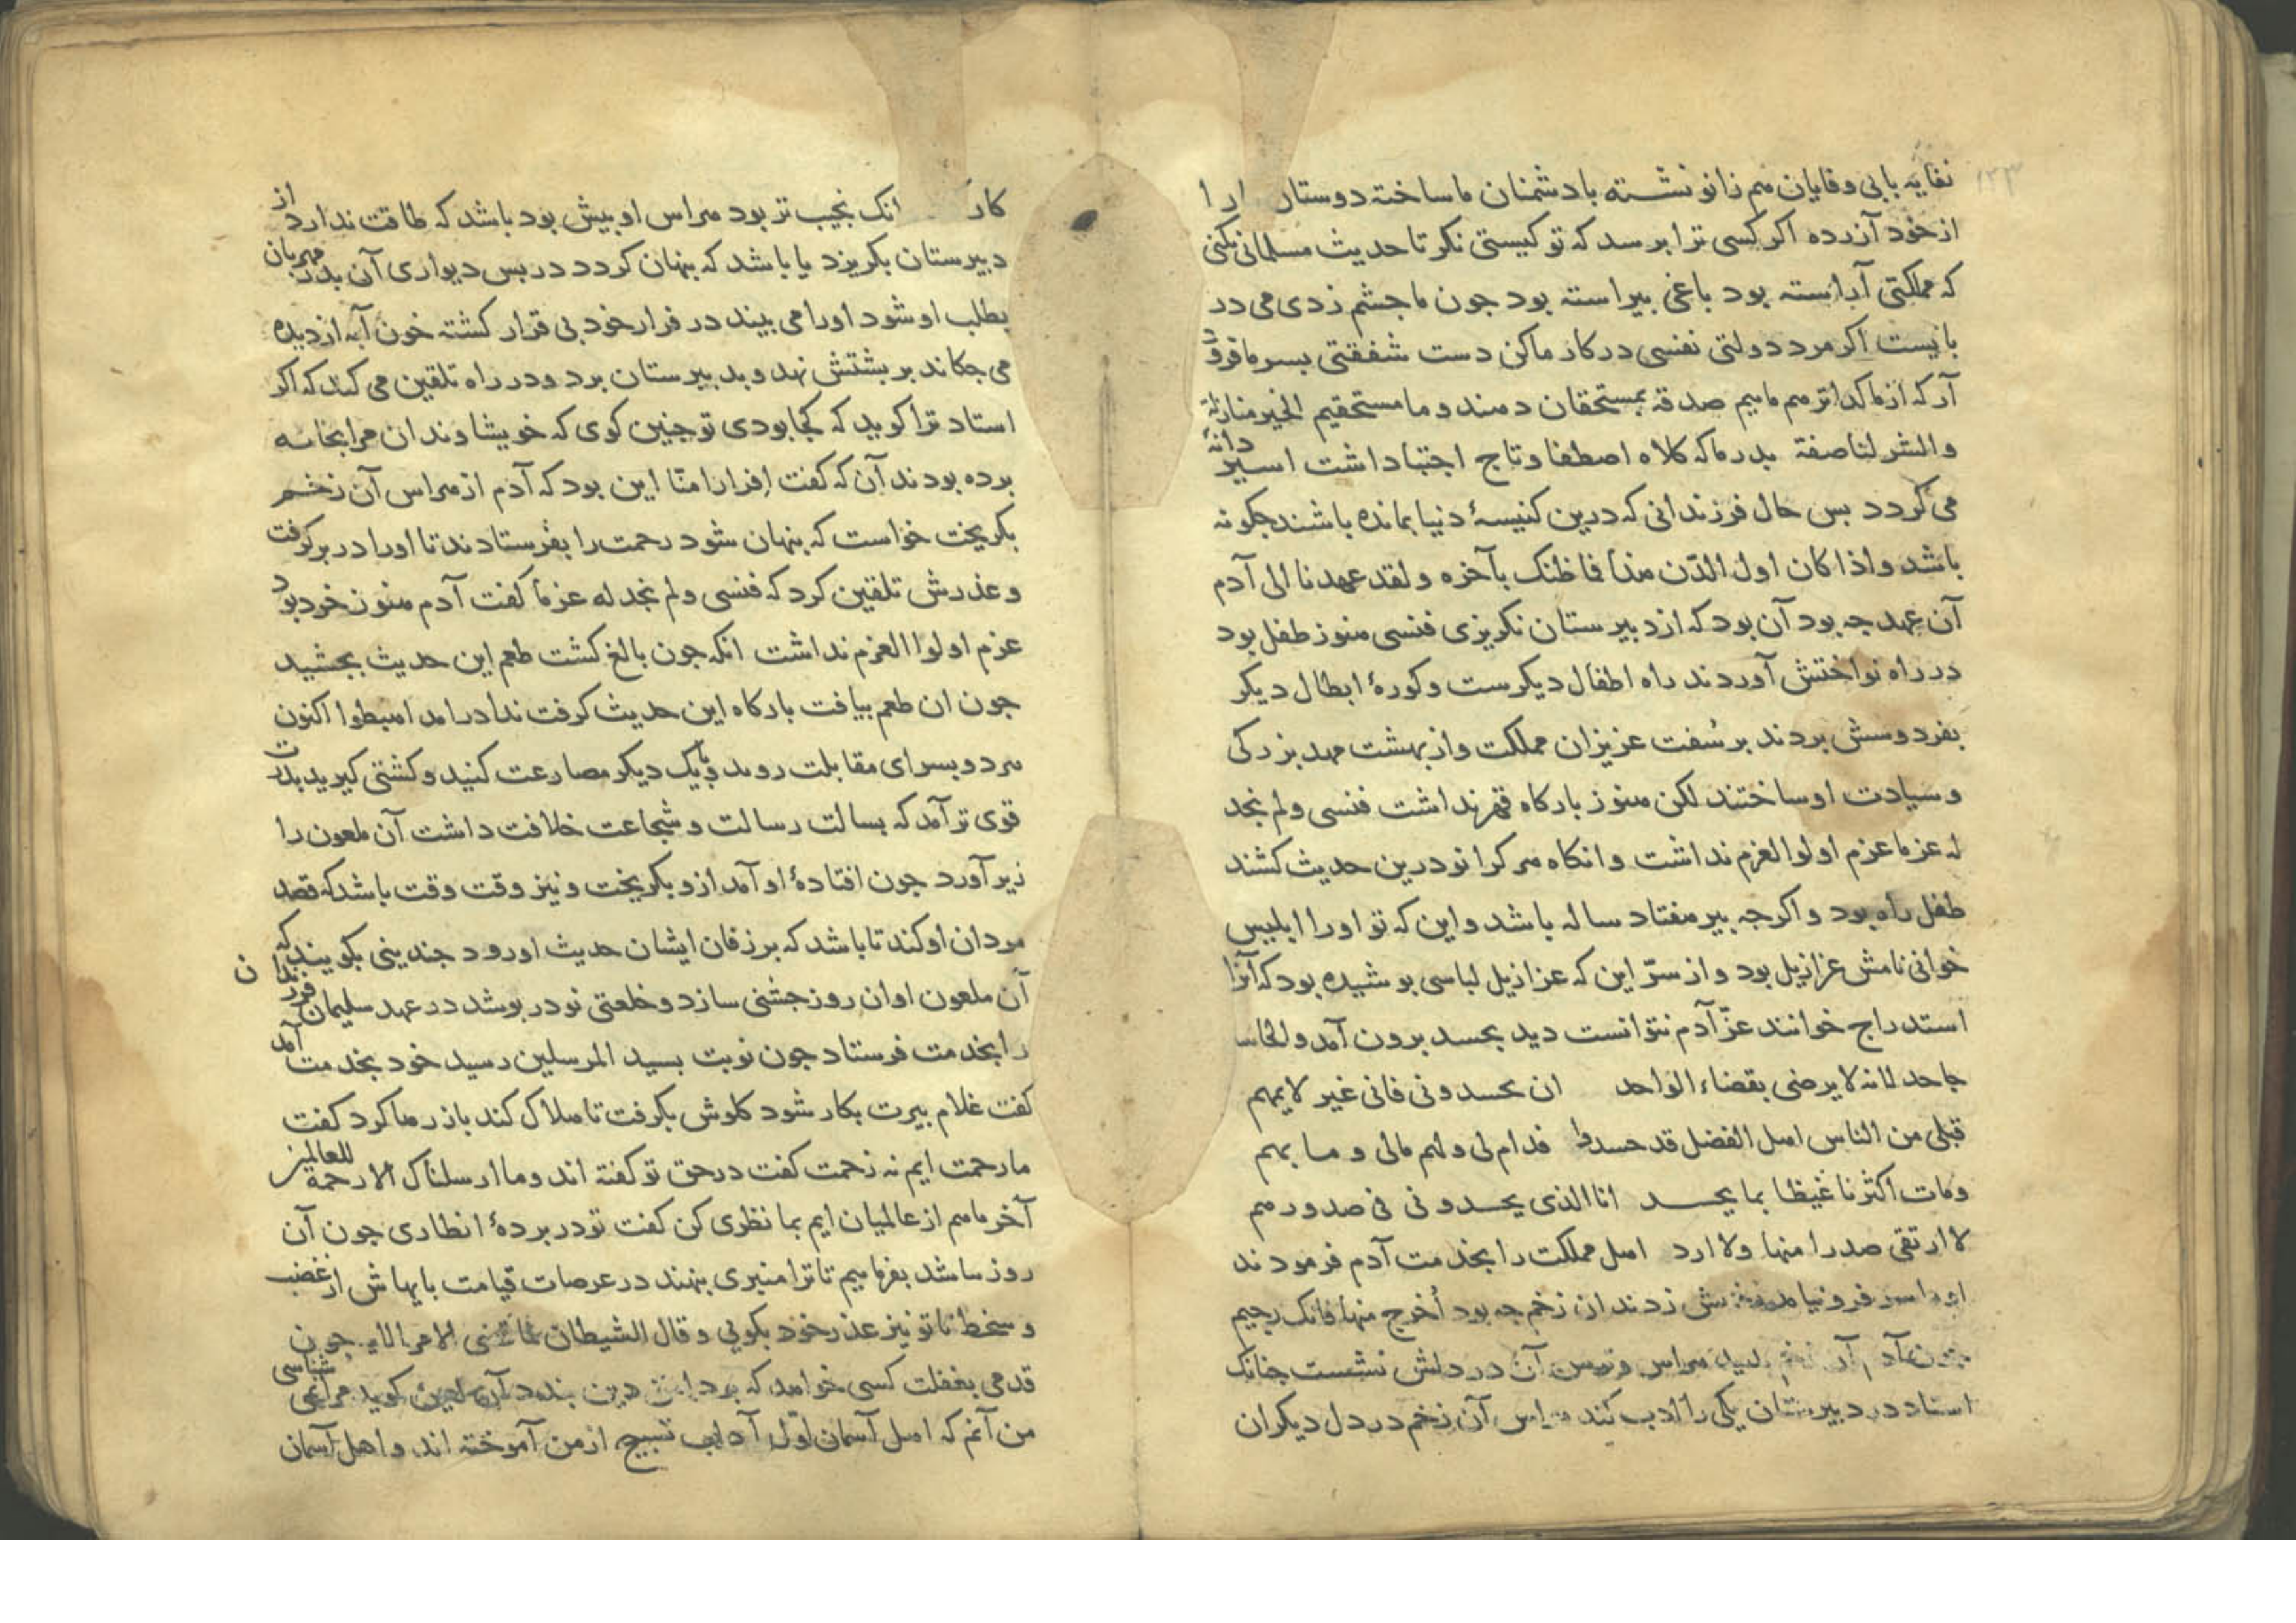 ۱۲۳
نفایه بابی وفایان هم زانو نشسته بادشمنان ما ساخته دوستار
از خود آزرده اکر کسی ترا برسد که تو کیستی نکر تا حدیث مسلمانی نکنی
که مملکتی آراسته بود باغی بیراسته بود جون ما جشم زدی می در
بایست اکر مرد دولتی نفسی در کار ما کن دست شفقتی بسر ما فرود
آر که از ما کداتر هم ماییم صدقه بمستحقان دهند و ما مستحقیم الخیر منا زلة
والشر لنا صفة بدر ما که کلاه اصطفا و تاج اجتبا داشت اسیر دانهٔ
می کردد بس حال فرزندانی که درین کنیسهٔ دنیا بمانده باشند جکونه
باشد واذا کان اول الدّن هذا فما ظنک بآخره ولقد عهدنا الی آدم
آن عهد جه بود آن بود که از دبیرستان نکریزی فنسی هنوز طفل بود
در راه نواختش آوردند راه اطفال دیکرست وکورهٔ ابطال دیکر
بفردوسش بردند بر سُفت عزیزان مملکت واز بهشت مهد بزرکی
وسیادت او ساختند لکن هنوز بارکاه قهر نداشت فنسی ولم نجد
له عزما عزم اولوالعزم نداشت وانکاه هر کرا نو درین حدیث کشند
طفل راه بود واکرجه بیر هفتاد ساله باشد واین که تو اورا ابلیس
خوانی نامش عزازیل بود واز سرّ این که عزازیل لباسی بوشیده بود که آنرا
استدراج خوانند عزّ آدم نتوانست دید بحسد برون آمد والحاسد
جاحد لانه لا یرضی بقضاء الواحد ان یحسدونی فانی غیر لایمهم
قبلی من الناس اهل الفضل قد حسدوا فدام لی ولهم مالی وما بهم
ومات اکثرنا غیظا بما یحسد انا الذی یحسدونی فی صدورهم
لا ارتقی صدرا منها ولا ارد اهل مملکت را بخدمت آدم فرمودند
سر فرو نیاورد زخمش زدند ان زخم جه بود أخرج منها فانک رجیم
جون آدم آن زخم بدید هراس وترس آن در دلش نشست جنانک
استاد در دبیرستان یکی را ادب کند هراس آن زخم در دل دیکران
کار انک نجیب تر بود هراس او بیش بود باشد که طاقت ندارد از
دبیرستان بکریزد یا باشد که بنهان کردد در بس دیواری آن بدر مهربان
بطلب او شود اورا می بیند در فرار خود بی قرار کشته خون آبه از دیده
می جکاند بر بشتش نهد وبدبیرستان برد ودر راه تلقین می کند که اکر
استاد ترا کوید که کجا بودی تو جنین کوی که خویشاوندان مرا بخانه
برده بودند آن که کفت افرارا منّا این بود که آدم از هراس آن زخم
بکریخت خواست که بنهان شود رحمت را بفرستادند تا اورا در بر کرفت
وعذرش تلقین کرد که فنسی ولم نجد له عزما کفت آدم هنوز خود بود
عزم اولوا العزم نداشت انکه جون بالغ کشت طعم این حدیث بجشید
جون ان طعم بیافت بارکاه این حدیث کرفت ندا درامد اهبطوا اکنون
هر دو بسرای مقابلت روید وبا یک دیکر مصارعت کنید وکشتی کیرید بدرت
قوی تر آمد که بسالت رسالت وشجاعت خلافت داشت آن ملعون را
زیر آورد جون افتادهٔ او آمد ازو بکریخت ونیز وقت وقت باشد که قصد
مردان او کند تا باشد که بر زفان ایشان حدیث او رود جندینی بکویند که
آن ملعون او ان روز جشنی سازد وخلعتی نو در بوشد در عهد سلیمان فرزندان
را بخدمت فرستاد جون نوبت بسید المرسلین رسید خود بخدمت آمد
کفت غلام بیرت بکار شود کلوش بکرفت تا هلاک کند باز رها کرد کفت
ما رحمت ایم نه زحمت کفت در حق تو کفته اند وما ارسلناک الا رحمة للعالمین
آخر ما هم از عالمیان ایم بما نظری کن کفت تو در بردهٔ انظاری جون آن
روز باشد بفرماییم تا ترا منبری بنهند در عرصات قیامت بایهاش از غضب
وسخط تا تو نیز عذر خود بکویی وقال الشیطان لما قضی الامر الایه جون
قدمی بغفلت کسی خواهد که برد این درین بندد آن لعین کوید مرا می شناسی
من آنم که اهل آسمان اوّل آداب تسبیح از من آموخته اند واهل آسمان